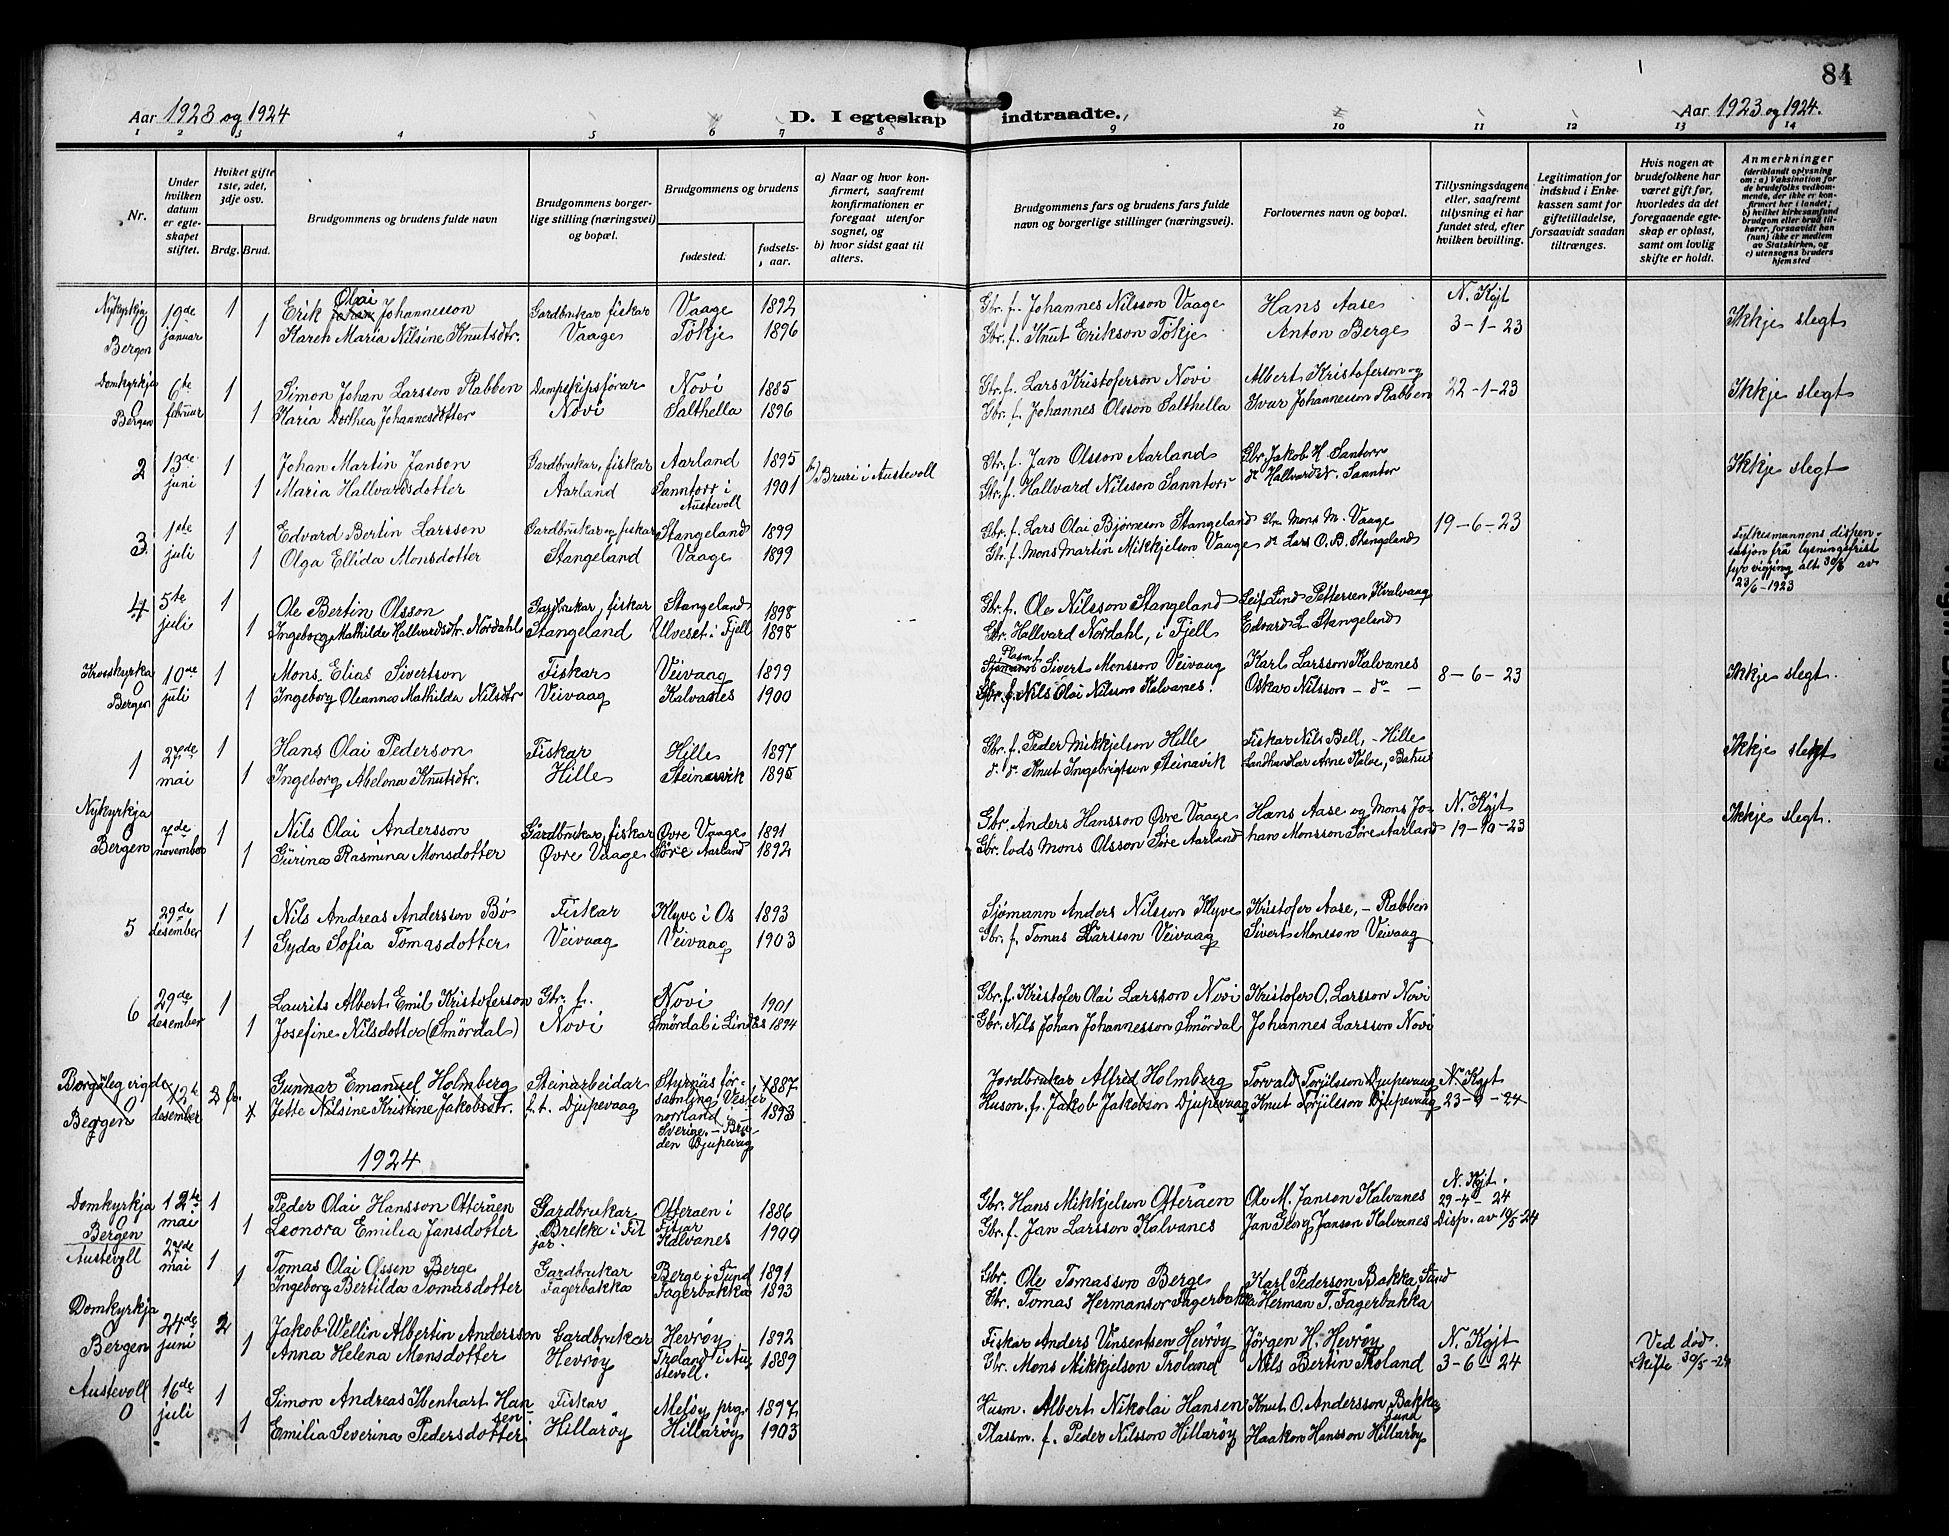 84
Aar 1923 og 1924
D. I egteskap indtraadte.
Aar 1923 og 1924.
1 2 3 4 5 6 7 8 9 10 11 12 13 14
Nr.
Under hvilken datum er egteskapet stiftet.
Hvilket gifte 1ste, 2det, 3dje osv.
Brdg. Brud.
Brudgommens og brudens fulde navn
Brudgommens borgerlige stilling (næringsvei) og bopæl.
Brudgommens og brudens
fødested.
fødselsaar.
a) Naar og hvor konfirmert, saafremt konfirmationen er foregaat utenfor sognet, og
b) hvor sidst gaat til alters.
Brudgommens fars og brudens fars fulde navn og borgerlige stillinger (næringsvei).
Forlovernes navn og bopæl.
Tillysningsdagene eller, saafremt tillysning ei har fundet sted, efter hvilken bevilling.
Legitimation for indskud i Enkekassen samt for giftetilladelse, forsaavidt saadan tiltrænges.
Hvis nogen av brudefolkene har været gift før, hvorledes da det foregaaende egteskap er opløst, samt om lovlig skifte er holdt.
Anmerkninger
(deriblandt oplysning om: a) Vaksination for de brudefolks vedkommende, der ikke er konfirmert her i landet; b) hvilket kirkesamfund brudgom eller brud tilhører, forsaavidt han (hun) ikke er medlem av Statskirken, og c) utensogns bruders hjemsted
Nykyrkja 0 Bergen 19de januar 1 Erik Olai Johannesson Gardbrukar fiskar Vaage 1892 Gbr. f. Johannes Nilsson Vaage Hans Aase N. Kgjt
1 Karen Maria Nilsine Knutsdtr. Vaage Tøkje 1896 Gbr. f. Knut Erikson Tøkje Anton Berge 3-1-23 Ikkje slegt
Domkyrkja 0 Bergen 6te februar 1 Simon Johan Larsson Rabben Dampskipsførar Novi 1885 Gbr. f. Lars Kristoferson Novi Albert Kristoferson og 22-1-23 Ikkje slegt
1 Maria Dorthea Johannesdotter Novi Salthella 1896 Gbr. f. Johannes Olsson Salthella Ivar Johannesson Rabben
2 13de juni 1 Johan Martin Janson Gardbrukar, fiskar Aarland 1895 b) Bruri i Austevoll Gbr. f. Jan Olsson Aarland Gbr Jakob H. Santorr Ikkje slegt
1 Maria Hallvardsdotter Aarland Sanntorr i Austevoll 1901 Gbr. f. Hallvard Nilsson Sanntorr do Hallvard N. Sanntor
3 1ste juli 1 Edvard Bertin Larsson Gardbrukar og fiskar Stangeland 1899 Gbr. f. Lars Olai Bjørneson Stangeland Gbr. Mons M. Vaage 19-6-23
1 Olga Ellida Monsdotter Stangeland Vaage 1899 Gbr. f. Mons Martin Mikkjelson Vaage do Lars O. B. Stangeland
Fylkesmannens dispensasjon frå lysningsfrist fyr vigjing alt 30/6 av 23/6-1923
4 5te juli 1 Ole Bertin Olsson Gardbrukar, fiskar Stangeland 1898 Gbr. f. Ole Nilsson Stangeland Leif Lind Pettersen Kvalvaag
1 Ingeborg Mathilde Hallvardsdtr. Nordahl Stangeland Ulveset i Fjell 1898 Gbr. Hallvard Nordahl, i Fjell Edvard L. Stangeland
Krosskyrka 0 Bergen 10de juli 1 Mons Elias Sivertson Fiskar Veivaag 1899 Plasm. f. Sivert Monsson Veivaag Karl Larsson Kalvanes 8-6-23 Ikkje slegt.
1 Ingeborg Oleanna Mathilda Nilsdtr Veivaag Kalvanes 1900 Gbr. f. Nils Olai Nilsson Kalvanes. Oskar Nilsson - do -
1 27de mai 1 Hans Olai Pederson Fiskar Hille 1897 Gbr. f. Peder Mikkjelson Hille Fiskar Nils Bell, - Hille Ikkje slegt
1 Ingeborg Abelona Knutsdtr. Hille Steinsvik 1895 do. do. Knut Ingebrigtson Steinavik Landhandlar Arne Kalve,
Nykyrkja 0 Bergen 7de november 1 Nils Olai Andersson Gardbrukar, fiskar Øvre Vaage 1891 Gbr. Anders Hansson Øvre Vaage Hans Aase og Mons Jo- N. Kgjt Ikkje slegt.
1 Surina Rasmina Monsdotter Øvre Vaage Søre Aarland 1892 Gbr. lods Mons Olsson Søre Aarland han Monsson Søre Aarland 19-10-23
5 29de desember 1 Nils Andreas Andersson Bø Fiskar Klyve i Os 1893 Sjømann Anders Nilsson Klyve Kristofer Aase, - Rabben
1 Gyda Sofia Tomasdotter Veivaag Veivaag 1903 Gbr. f. Tomas Larsson Veivaag Sivert Monsson Veivaag
6 29de desember 1 Laurits Albert Emil Kristoferson Gbr. f. Novi 1901 Gbr. f. Kristofer Olai Larsson Novi Kristofer O. Larsson Novi
1 Josefine Nilsdotter (Smørdal) Novi Smørdal i Lindås 1894 Gbr. Nils Johan Johannesson Smørdal Johannes Larsson Novi
Borgarleg vigde 0 Bergen 12te desember 2 Gunnar Emanuel Holmberg Steinarbeidar Styrnäs församling Vesternorrland i Sverige. - Bruden Djupevaag 1887 Jordbrukar Alfred Holmberg Torvald Torjilsson Djupevaag N. Kgjt
1 Jette Nilsine Kristine Jakobsdtr. f. t. Djupevaag 1893 Husm. f. Jakob Jakobson Djupevaag Knut Torjilsson Djupevaag
1924
Domkyrkja 0 Bergen 12te mai 1 Peder Olai Hansson Otteråen Gardbrukar Otteraen i Fitjar 1886 Gbr. Hans Mikkjelson Otteråen Ole M. Janson Kalvanes N. Kgjt. 29-4-24
1 Leonora Emilia Jansdotter Brekke i Fitjar. Kalvanes 1900 Gbr. f. Jan Larsson Kalvanes Jan Georg Janson Kalvanes Disp. av 10/5-24
Austevoll 0 27de mai 1 Tomas Olai Olsen Berge Gardbrukar Berge i Sund 1891 Gbr. Ole Tomasson Berge Karl Pederson Bakka, Sund
1 Ingeborg Bertilda Tomasdotter Fagerbakka Fagerbakka 1893 Gbr. Tomas Hermansor Fagerbakka Herman T. Fagerbakka
Domkyrkja 0 Bergen 24de juni 2 Jakob Wellin Albertin Andersson Gardbrukar Hevrøy 1892 Fiskar Anders Vinsentsen Hevrøy Jørgen H. Hevrøy N. Kgjt Ved død.
1 Anna Helena Monsdotter Hevrøy Troland i Austevoll. 1889 Gbr. Mons Mikkjelson Troland Nils Bertin Troland 3-6-24 Skifte 30/5-24
Austevoll 0 16de juli 1 Simon Andreas Menhart Hansen Fiskar Meløy prg. 1897 Husm. Albert Nikolai Hansen Knut O. Andersson, Bakka, Sund
1 Emilia Severina Pedersdotter Hillarøy Hillarøy 1903 Plassm. f. Peder Nilsson Hillarøy Haakon Hansson Hillarøy